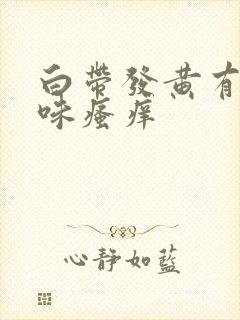 白帶發黄有
味瘙痒
心靜如藍